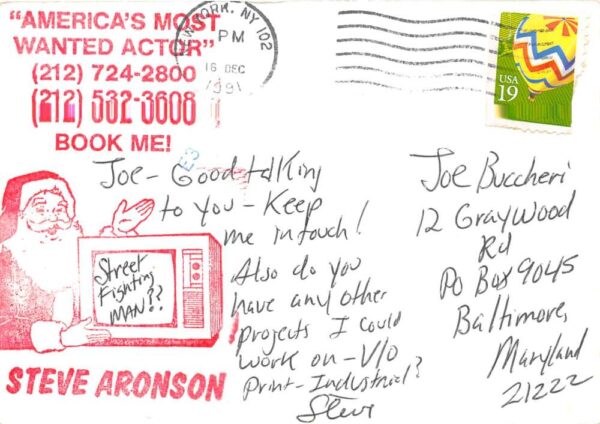 "AMERICA'S MOST
WANTED ACTOR"
(212) 724-2800
(212) 532-3608
BOOK ME!
YORK, NY 102
PM
16 DEC
1991
USA
19
Joe - Good talking
to you - Keep
me in touch!
Also do you
have any other
projects I could
work on - V/O
Print - Industrial?
Steve
Street
Fighting
MAN??
STEVE ARONSON
Joe Buccheri
12 Graywood
Rd
PO Box 9045
Baltimore,
Maryland
21222